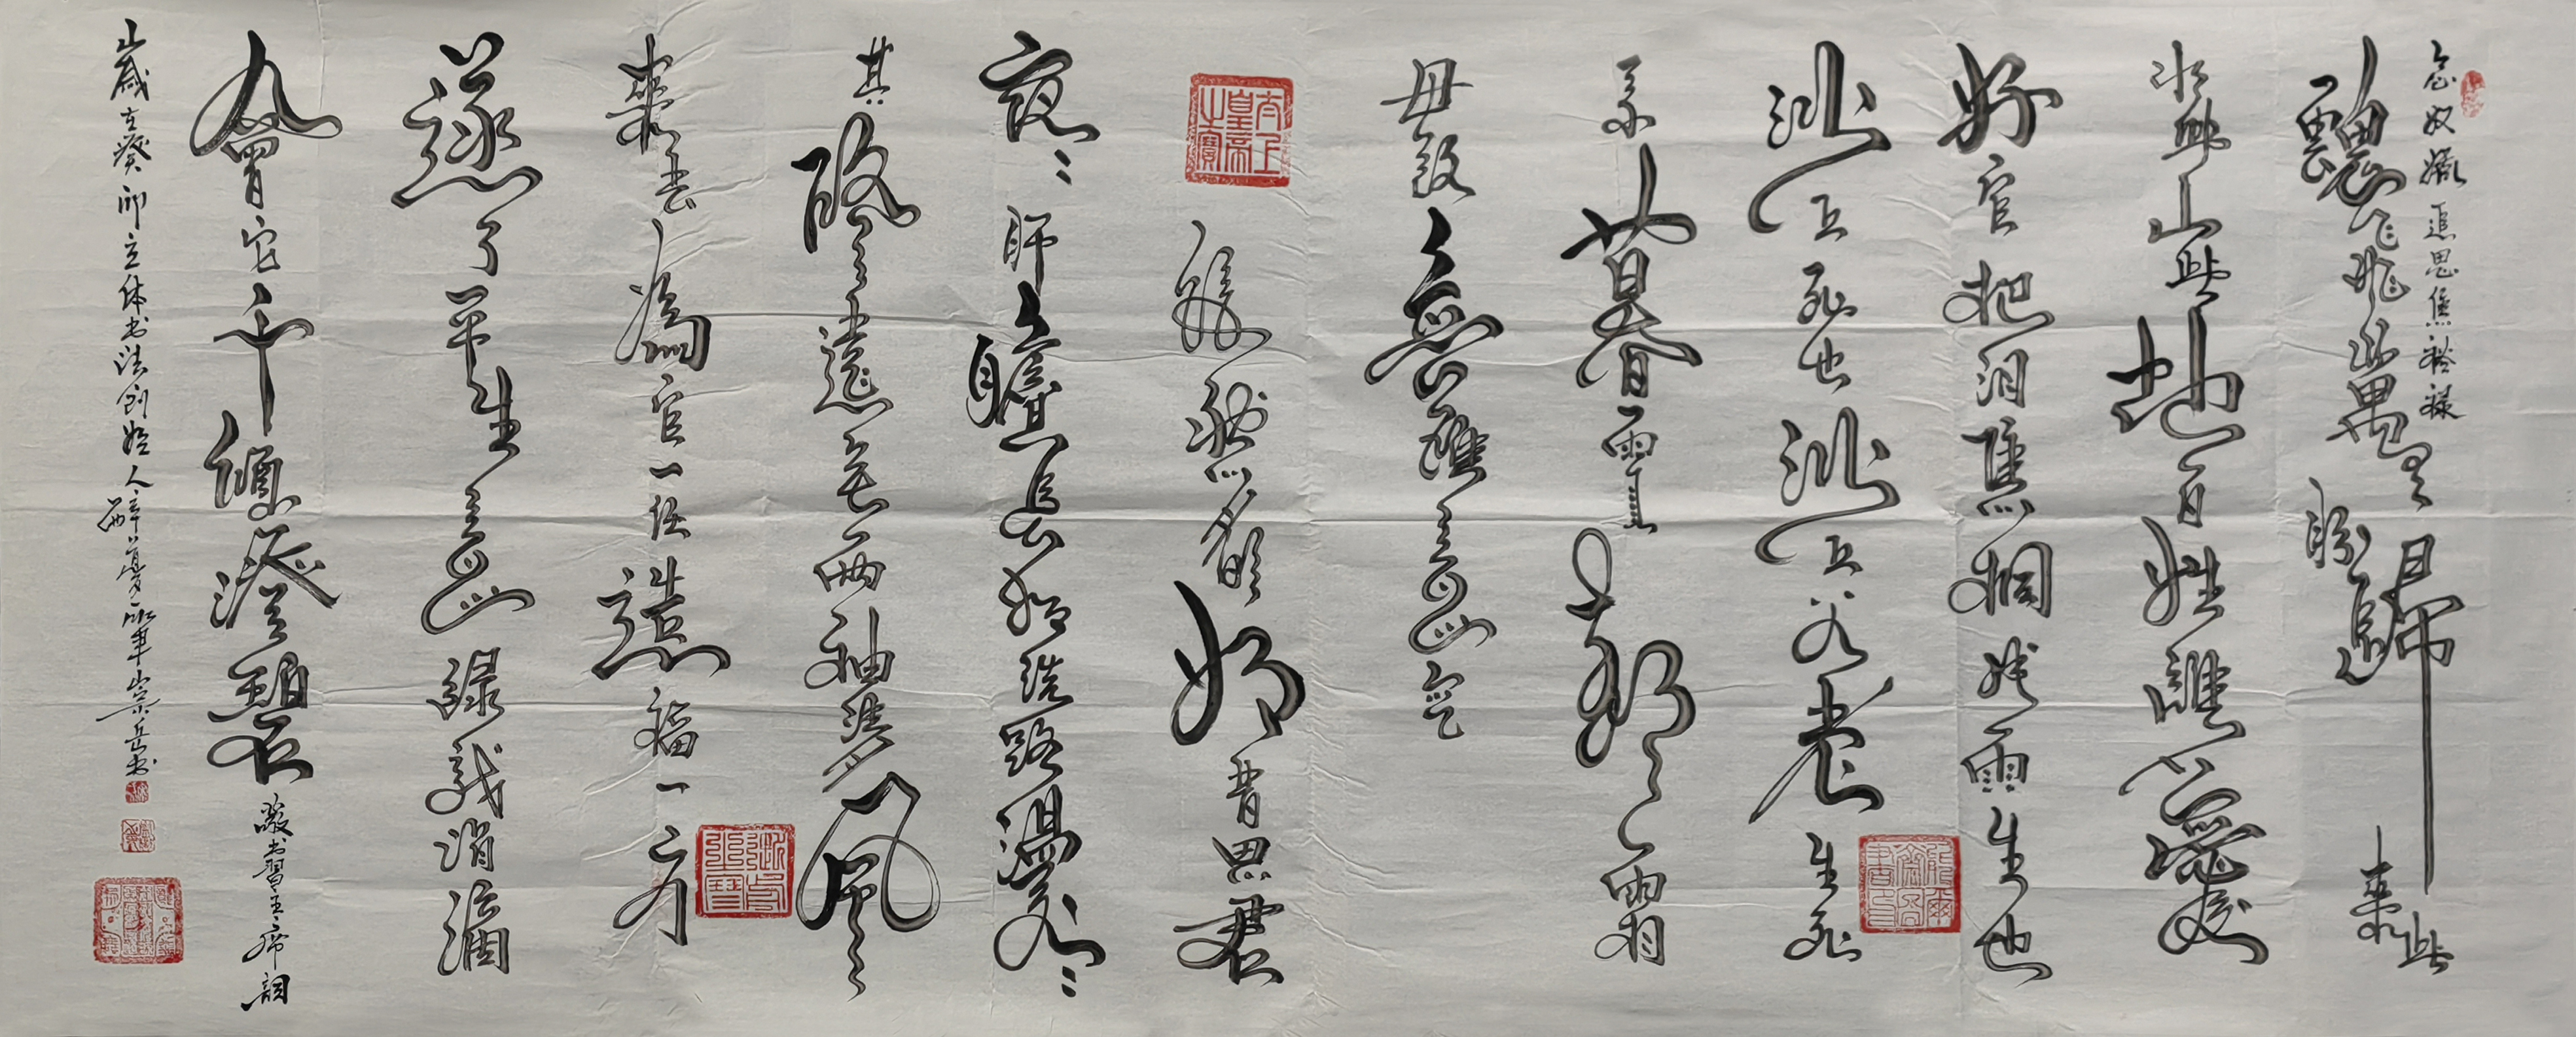 念奴嬌 追思焦裕祿
魂飛萬里盼歸來此
水此山此地百姓誰不愛
好官把泪焦桐成雨生也
沙丘死也沙丘父老生死
系暮雪朝霜
毋改英雄意气
依然月明如昔思君
夜〻肝膽長如洗路漫〻
其修遠矣兩袖清風
來去為官一任造福一方
遂了平生意綠我涓滴
會它千頃澄碧 敬书習主席詞
歲在癸卯立体书法创始人醉夢軍崇岳书